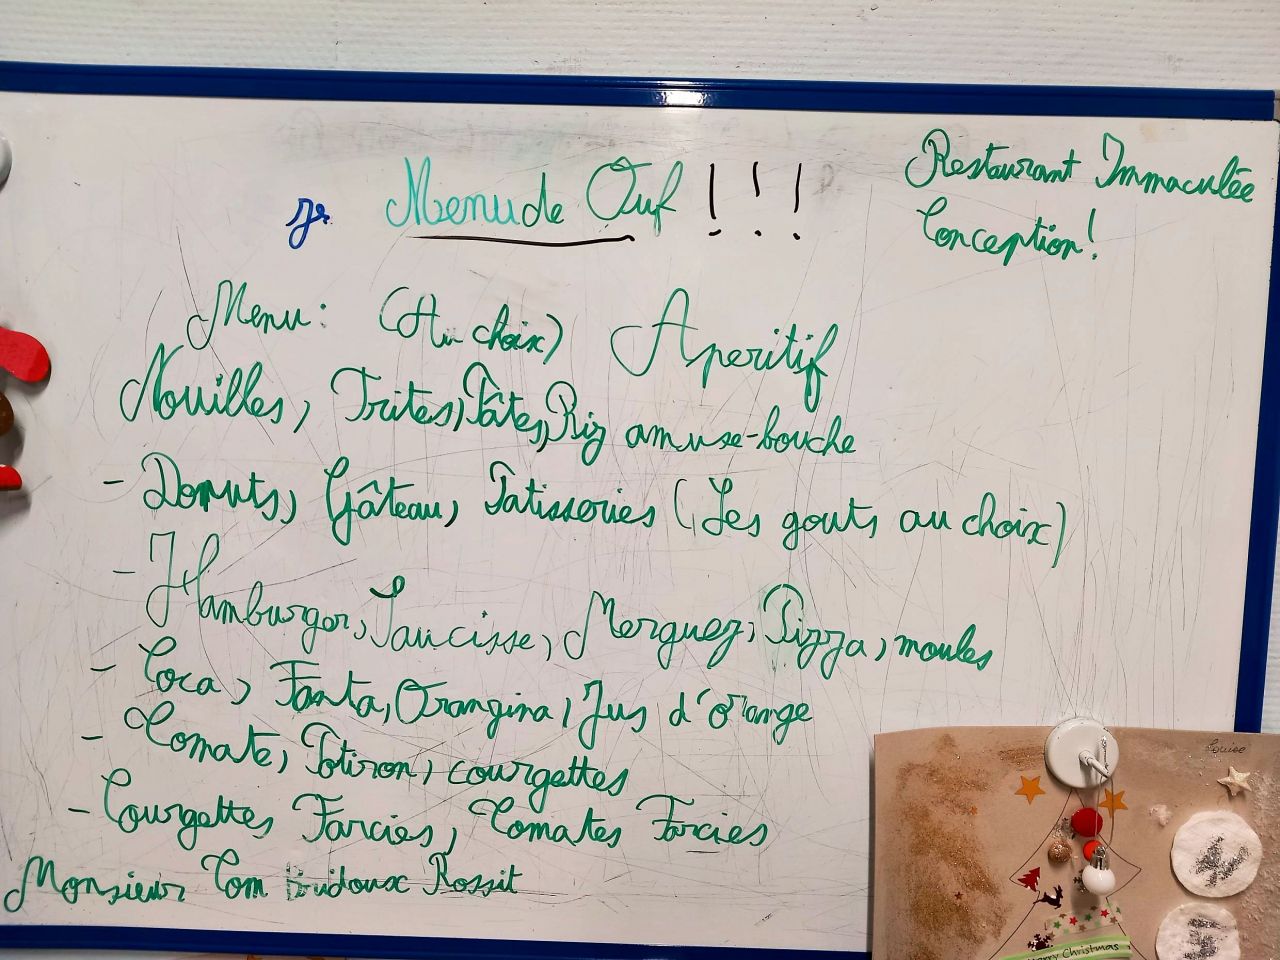 Menu de Ouf !!!
Restaurant Immaculée
Conception!
Menu: (Au choix) Aperitif
Nouilles, Frites, Pâtes, Riz amuse-bouche
- Donuts, Gâteau, Patisseries (Les gouts au choix)
- Hamburger, Saucisse, Merguez, Pizza, moules
- Coca, Fanta, Orangina, Jus d'orange
- Tomate, Potiron, courgettes
- Courgettes Farcies, Tomates Farcies
Monsieur Tom Rossit
Louise
Merry Christmas